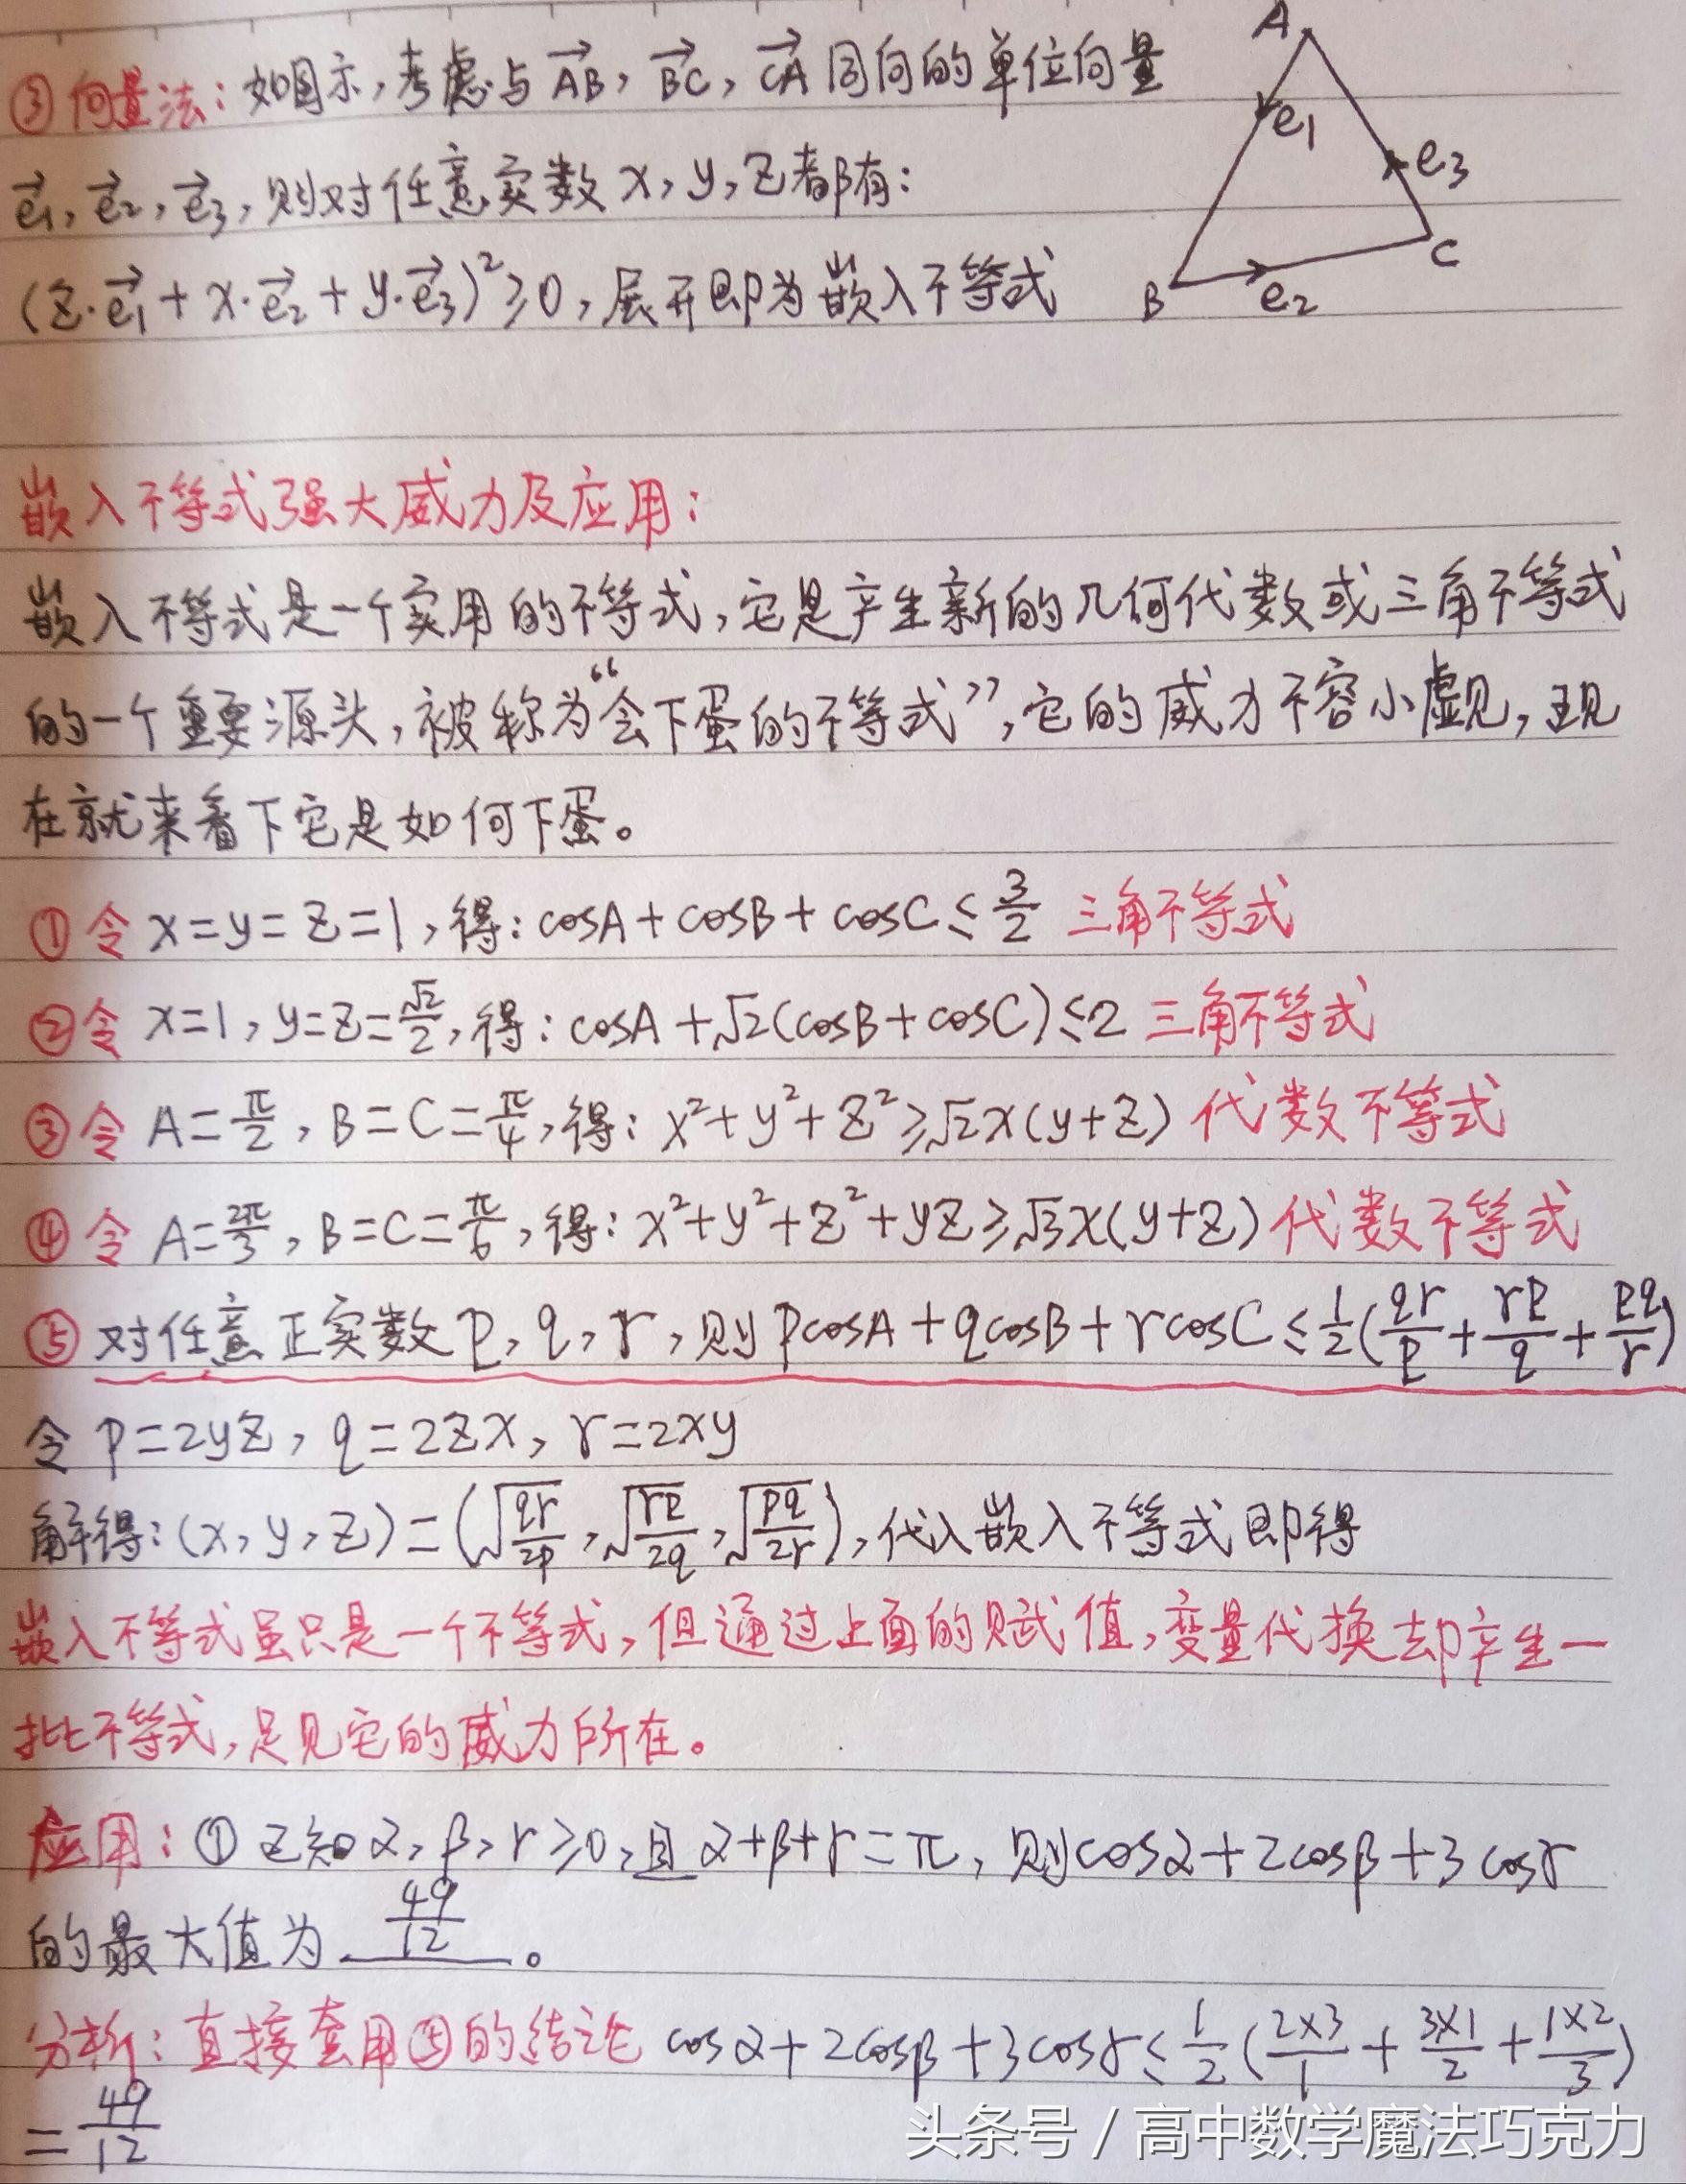 ③向量法：如图示，考虑与 $\overrightarrow{AB}$，$\overrightarrow{BC}$，$\overrightarrow{CA}$ 同向的单位向量
$\vec{e_1}, \vec{e_2}, \vec{e_3}$，则对任意实数 x，y，z都有：
$(z·\vec{e_1} + x·\vec{e_2} + y·\vec{e_3})^2 ≥ 0$，展开即为嵌入不等式
A
e1
e3
C
B
e2
嵌入不等式强大威力及应用：
嵌入不等式是一个实用的不等式，它是产生新的几何代数或三角不等式
的一个重要源头，被称为“会下蛋的不等式”，它的威力不容小虚见，现
在就来看下它是如何下蛋。
①令 x=y=z=1，得：cosA+cosB+cosC≤$\frac{3}{2}$ 三角不等式
②令 x=1，y=z=$\frac{\sqrt{2}}{2}$，得：cosA+$\sqrt{2}$(cosB+cosC)≤2 三角不等式
③令 A=$\frac{π}{2}$，B=C=$\frac{π}{4}$，得：$x^2+y^2+z^2≥\sqrt{2}x(y+z)$ 代数不等式
④令 A=$\frac{2π}{3}$，B=C=$\frac{π}{6}$，得：$x^2+y^2+z^2+yz≥\sqrt{3}x(y+z)$ 代数不等式
⑤对任意正实数 p，q，r，则 pcosA+qcosB+rcosC≤$\frac{1}{2}(\frac{qr}{p}+\frac{rp}{q}+\frac{pq}{r})$
令 p=2yz，q=2zx，r=2xy
解得：(x，y，z)=$(\sqrt{\frac{qr}{2p}}，\sqrt{\frac{rp}{2q}}，\sqrt{\frac{pq}{2r}})$，代入嵌入不等式即得
嵌入不等式虽只是一个不等式，但通过上面的赋值，变量代换却产生一
批不等式，足见它的威力所在。
应用：①已知α，β，r≥0，且α+β+r=π，则cosα+2cosβ+3cosr
的最大值为 $\frac{49}{12}$ 。
分析：直接套用⑤的结论 cosα+2cosβ+3cosr≤$\frac{1}{2}(\frac{2×3}{1}+\frac{3×1}{2}+\frac{1×2}{3})$
=$\frac{49}{12}$
头条号 / 高中数学魔法巧克力